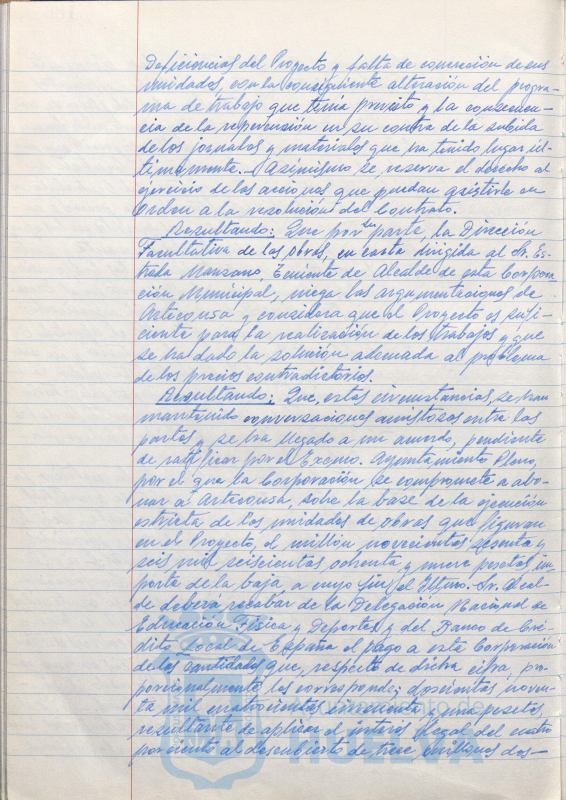 Deficiencias del Proyecto y falta de concreción de sus
unidades, con la consiguiente alteración del progra-
ma de trabajo que tenía previsto y la consecuen-
cia de la repercusión en su contra de la subida
de los jornales y materiales que ha tenido lugar úl-
timamente.- Asimismo se reserva el derecho al
ejercicio de las acciones que puedan asistirle en
Orden a la resolución del Contrato.
Resultando: Que por su parte, la Dirección
Facultativa de las obras, en carta dirigida al Sr. Es-
trada Manzano, Teniente de Alcalde de esta Corpora-
ción Municipal, niega las argumentaciones de
Articonsa y considera que el Proyecto es sufi-
ciente para la realización de los trabajos y que
se ha dado la solución adecuada al problema
de los precios contradictorios.
Resultando: Que, estas circunstancias, se han
mantenido conversaciones amistosas entre las
partes y se ha llegado a un acuerdo, pendiente
de ratificar por el Excmo. Ayuntamiento Pleno,
por el que la Corporación se compromete a abo-
nar al Articonsa, sobre la base de la ejecución
estricta de los unidades de obras que figuran
en el Proyecto, el millón novecientas sesenta y
seis mil seiscientas ochenta y nueve pesetas im-
porte de la baja, a cuyo fin, el Iltmo. Sr. Alcal-
de deberá recabar de la Delegación Nacional de
Educación Física y Deportes y del Banco de Cré-
dito Local de España el pago a esta Corporación
de las cantidades que, respecto de dicha cifra, pro-
porcionalmente les corresponde; doscientas noven-
ta mil cuatrocientas cincuenta y una pesetas,
resultante de aplicar el interés legal del cuatro
por ciento al descubierto de trece millones dos-
HUELVA